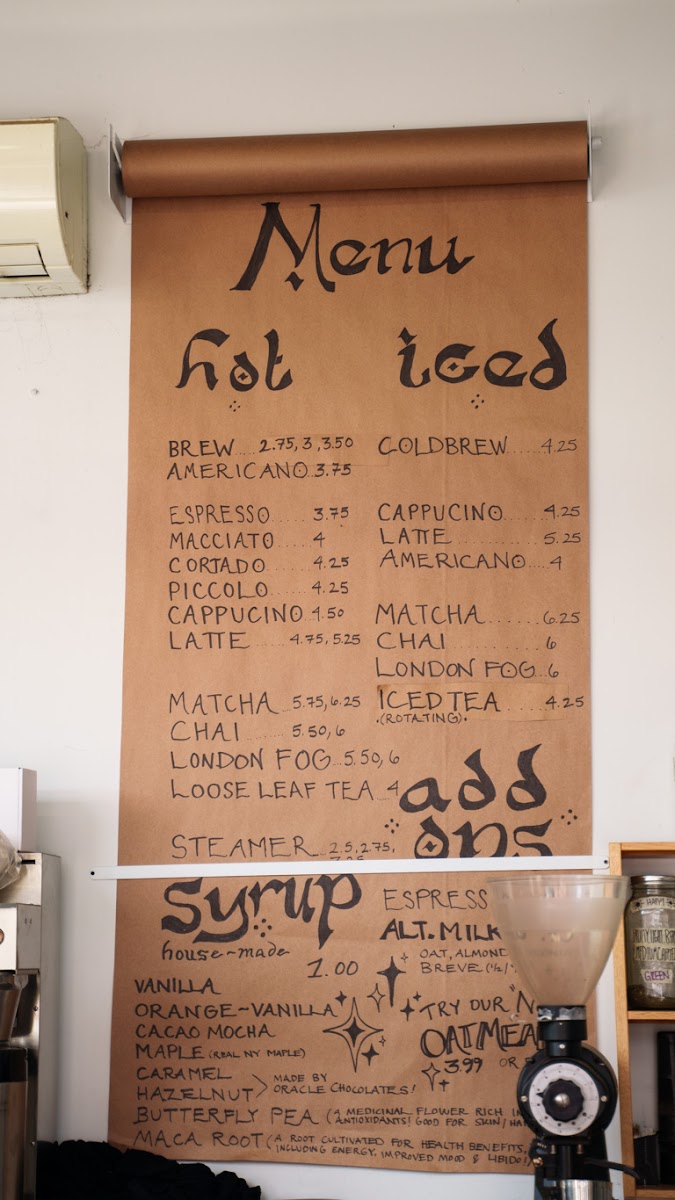 Menu
hot
BREW.....2.75, 3, 3.50
AMERICANO.3.75
ESPRESSO......3.75
MACCIATO.....4
CORTADO......4.25
PICCOLO......4.25
CAPPUCINO 4.50
LATTE 4.75, 5.25
MATCHA...5.75, 6.25
CHAI 5.50, 6
LONDON FOG...5.50, 6
LOOSE LEAF TEA..4
STEAMER...2.5, 2.75,
iced
COLDBREW......4.25
CAPPUCINO.......4.25
LATTE............5.25
AMERICANO....4
MATCHA........6.25
CHAI.............6
LONDON FOG..6
ICED TEA.....4.25
.(ROTATING).
add
ons
syrup
house-made
1.00
VANILLA
ORANGE~VANILLA
CACAO MOCHA
MAPLE (REAL NY MAPLE)
CARAMEL
HAZELNUT
MADE BY
ORACLE CHOCOLATES!
BUTTERFLY PEA (A MEDICINAL FLOWER RICH IN
ANTIOXIDANTS! GOOD FOR SKIN/HAI
MACA ROOT (A ROOT CULTIVATED FOR HEALTH BENEFITS,
INCLUDING ENERGY, IMPROVED MOOD & LIBIDO!)
ESPRESS
ALT. MILK
OAT, ALMOND
BREVE (1/2/
TRY OUR "N
OATMEA
3.99 OR
GREEN